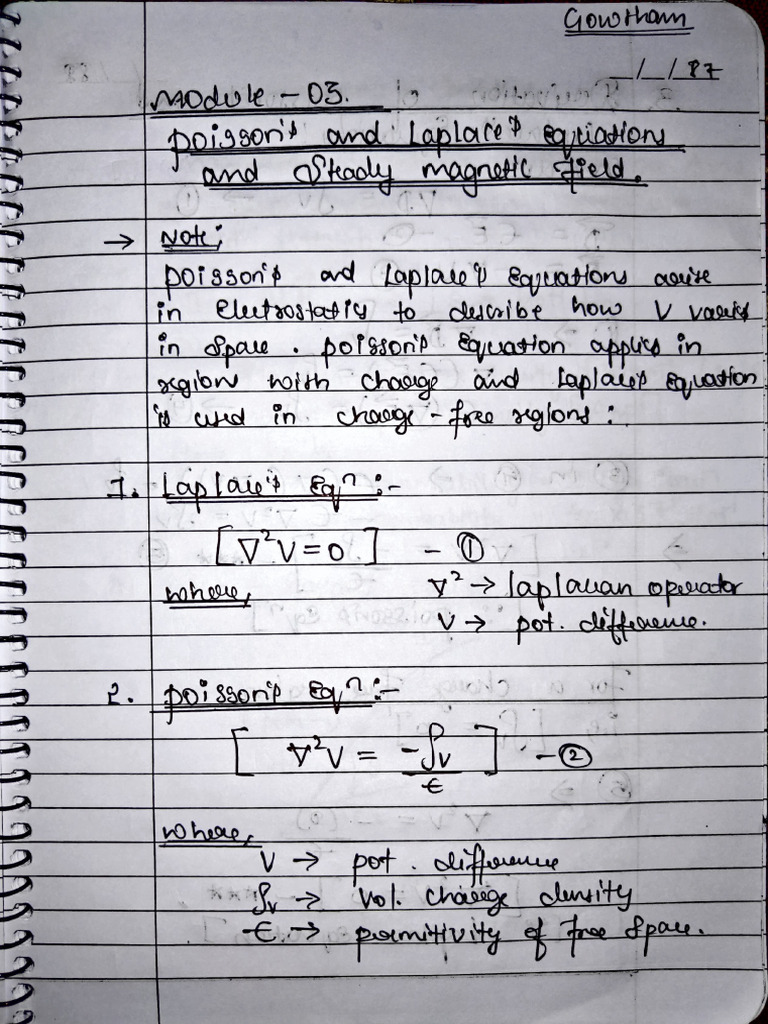 Gowtham
_/_/87
Module - 03.
Poisson's and Laplace's Equations
and Steady magnetic field.
→ Note:
Poisson's and Laplace's Equations arise
in Electrostatics to describe how V varies
in Space. Poisson's Equation applies in
regions with charge and Laplace's Equation
is used in charge-free regions:
1. Laplace's Eqn:-
[∇²V = 0] - ①
where, ∇² → laplacian operator
V → pot. difference.
2. Poisson's Eqn:-
[∇²V = -ρv/ϵ] - ②
where,
V → pot. difference
ρv → Vol. charge density
ϵ → permitivity of free Space.